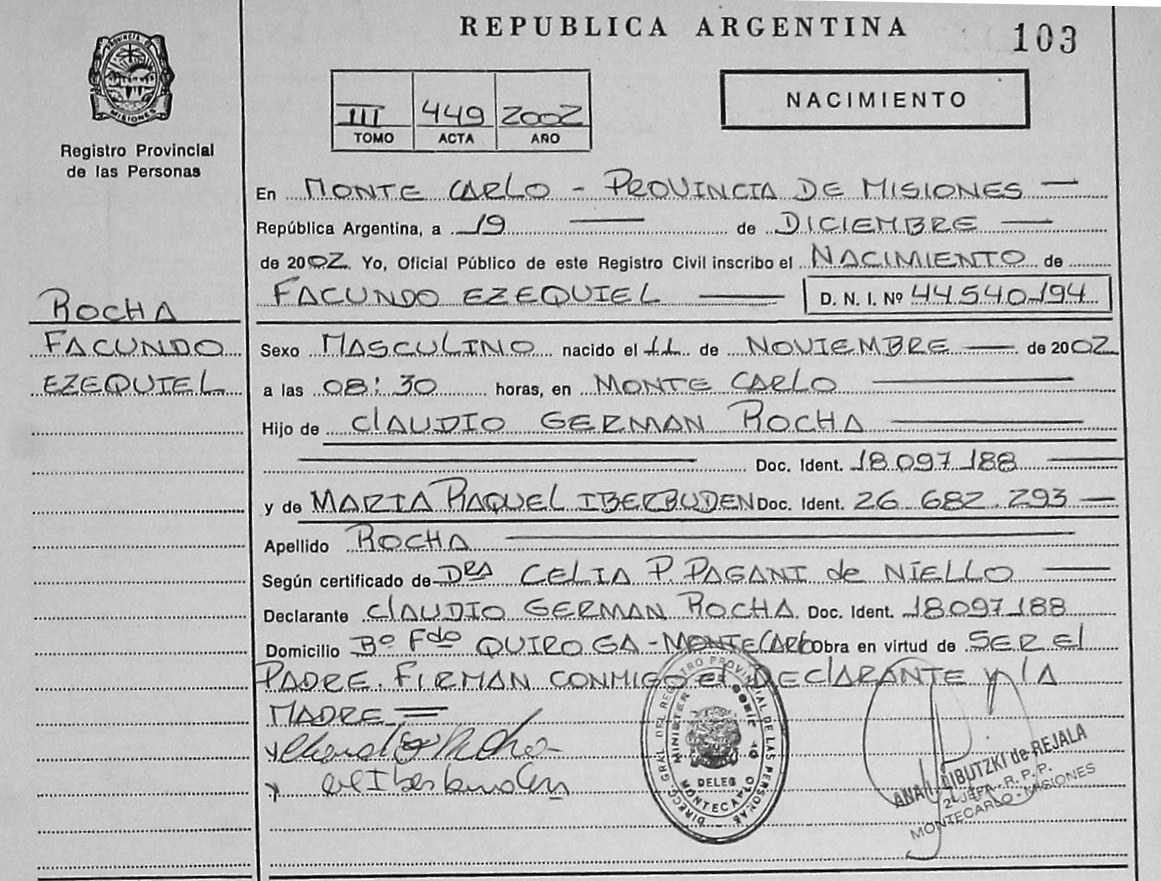 REPUBLICA ARGENTINA
103
PROVINCIA D
MISIONES
Registro Provincial
de las Personas
NACIMIENTO
III 449 2002
TOMO ACTA AÑO
En MONTE CARLO - PROVINCIA DE MISIONES —
República Argentina, a 19 — de DICIEMBRE —
de 2002 Yo, Oficial Público de este Registro Civil inscribo el NACIMIENTO de
FACUNDO EZEQUIEL — D. N. I. Nº 44.540.194
ROCHA
FACUNDO
EZEQUIEL
Sexo MASCULINO nacido el 11 de NOVIEMBRE — de 2002
a las 08:30 horas, en MONTE CARLO —
Hijo de CLAUDIO GERMAN ROCHA —
— Doc. Ident. 18.097.188 —
y de MARIA RAQUEL IBERBUDEN Doc. Ident. 26.682.293 —
Apellido ROCHA —
Según certificado de DRA CELIA P. PAGANI de NIELLO —
Declarante CLAUDIO GERMAN ROCHA Doc. Ident. 18.097.188
Domicilio Bº Fdo QUIROGA - MONTECARLO Obra en virtud de SER El
PADRE. FIRMAN CONMIGO el DECLARANTE y lA
MADRE =
DIRECC. GRAL. DEL REGISTRO PROVINCIAL DE LAS PERSONAS
DELEG
MONTECARLO
de REJALA
JEFA R. P. P.
MONTECARLO - MISIONES